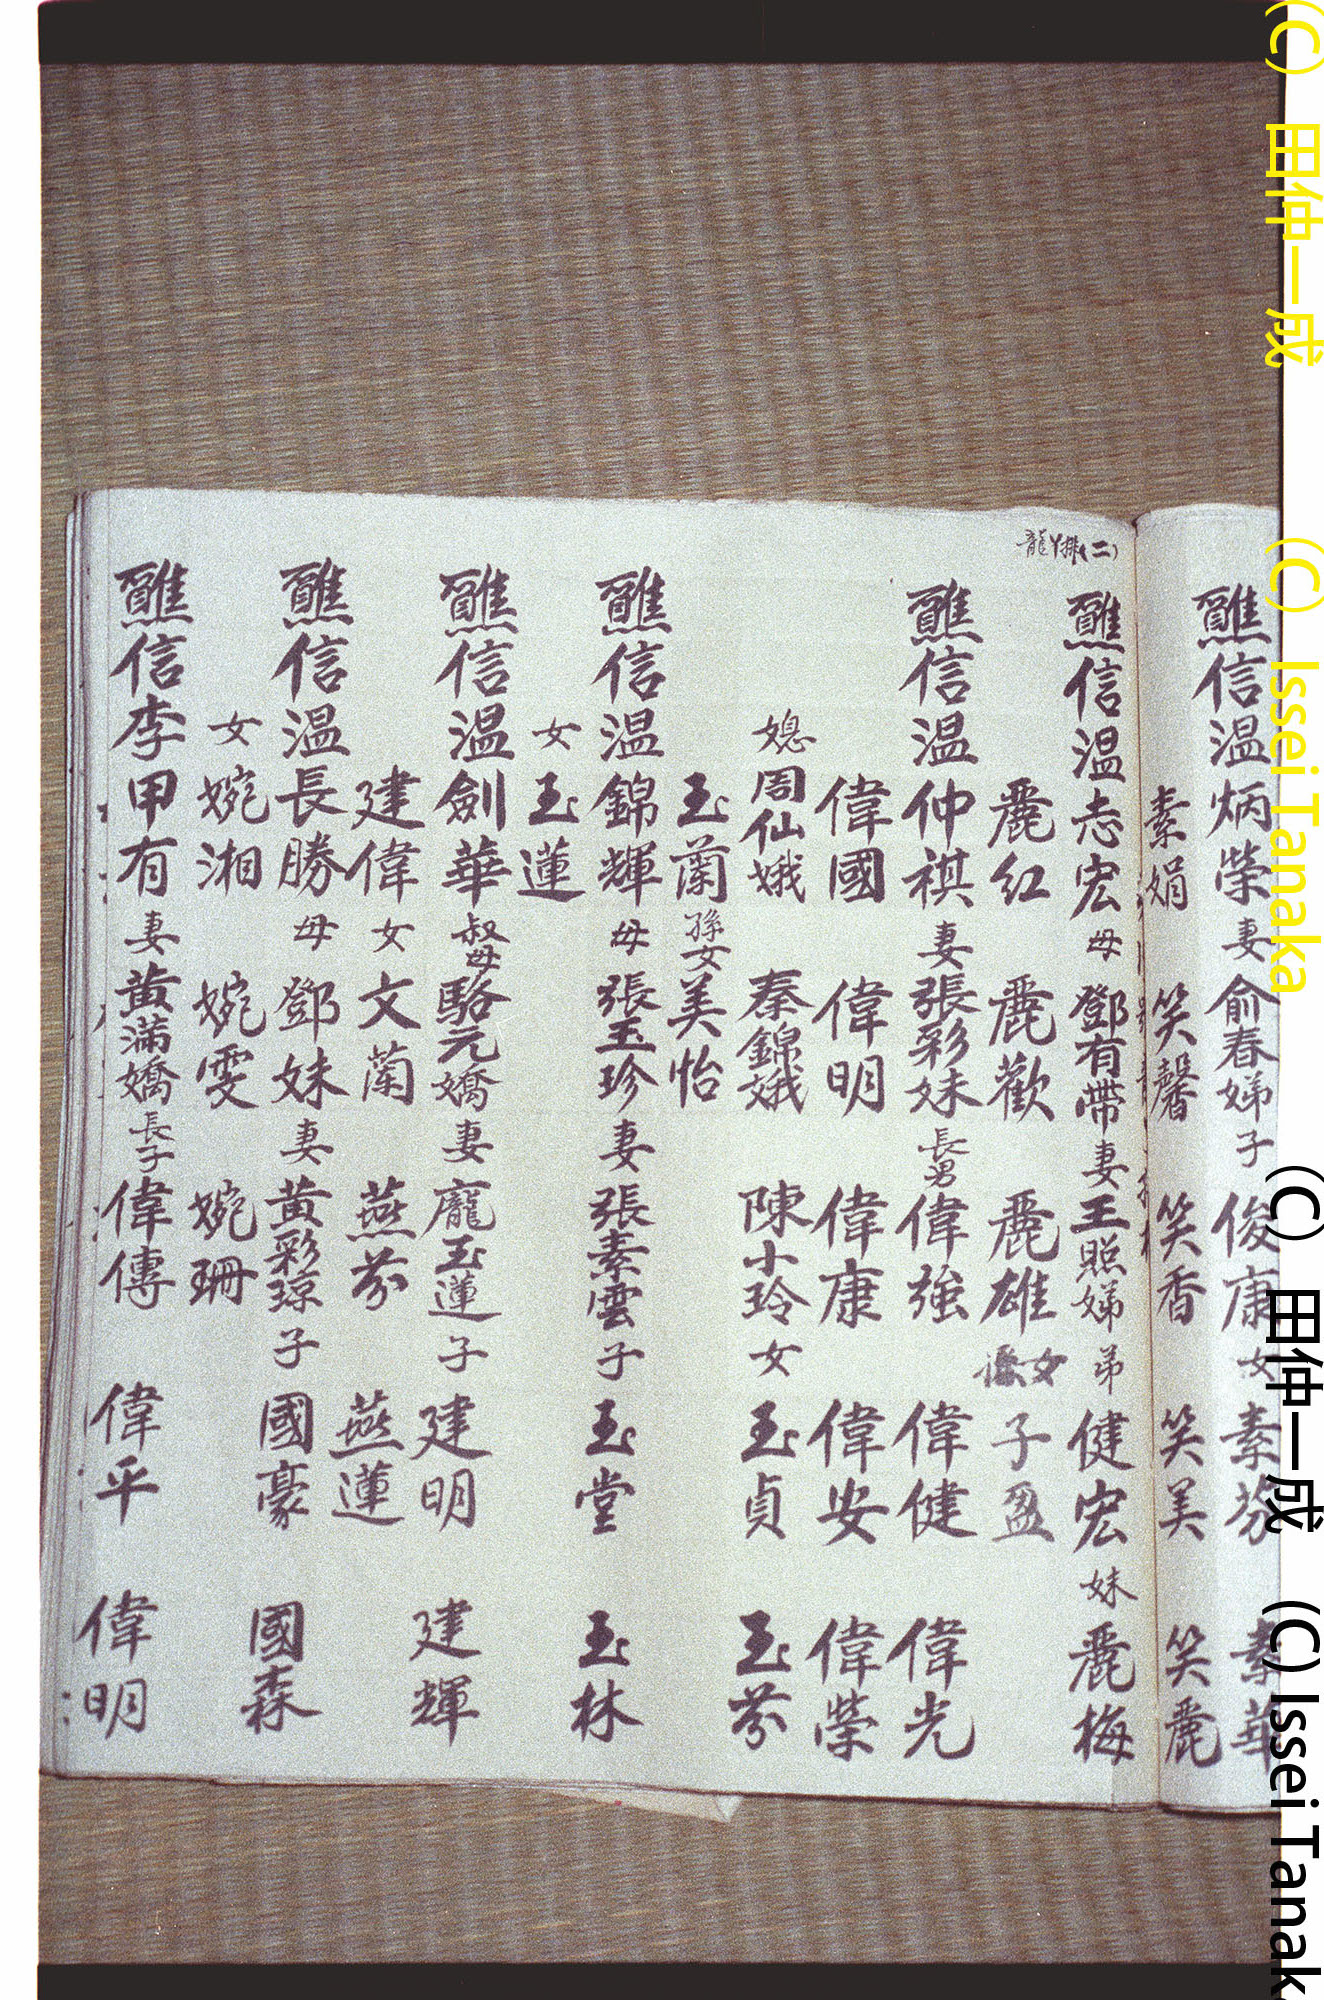 醮信温炳榮妻俞春娣子俊康女素芬素華
素娟笑馨笑香笑美笑麗
龍丫排(二)
醮信温志宏母鄧有帶妻王照娣弟健宏妹麗梅
麗紅麗歡麗雄女子盈
醮信温仲祺妻張彩妹長男偉強偉健偉光
偉國偉明偉康偉安偉榮
媳周仙娥秦錦娥陳小玲女玉貞玉芬
玉蘭孫女美怡
醮信温錦輝母張玉珍妻張素雲子玉堂玉林
女玉蓮
醮信温劍華叔母駱元嬌妻龐玉蓮子建明建輝
建偉女文蘭燕芬燕蓮
醮信温長勝母鄧妹妻黃彩琼子國豪國森
女婉湘婉雯婉珊
醮信李甲有妻黃滿嬌長子偉傳偉平偉明
(C) 田仲一成 (C) Issei Tanaka (C) 田仲一成 (C) Issei Tanak